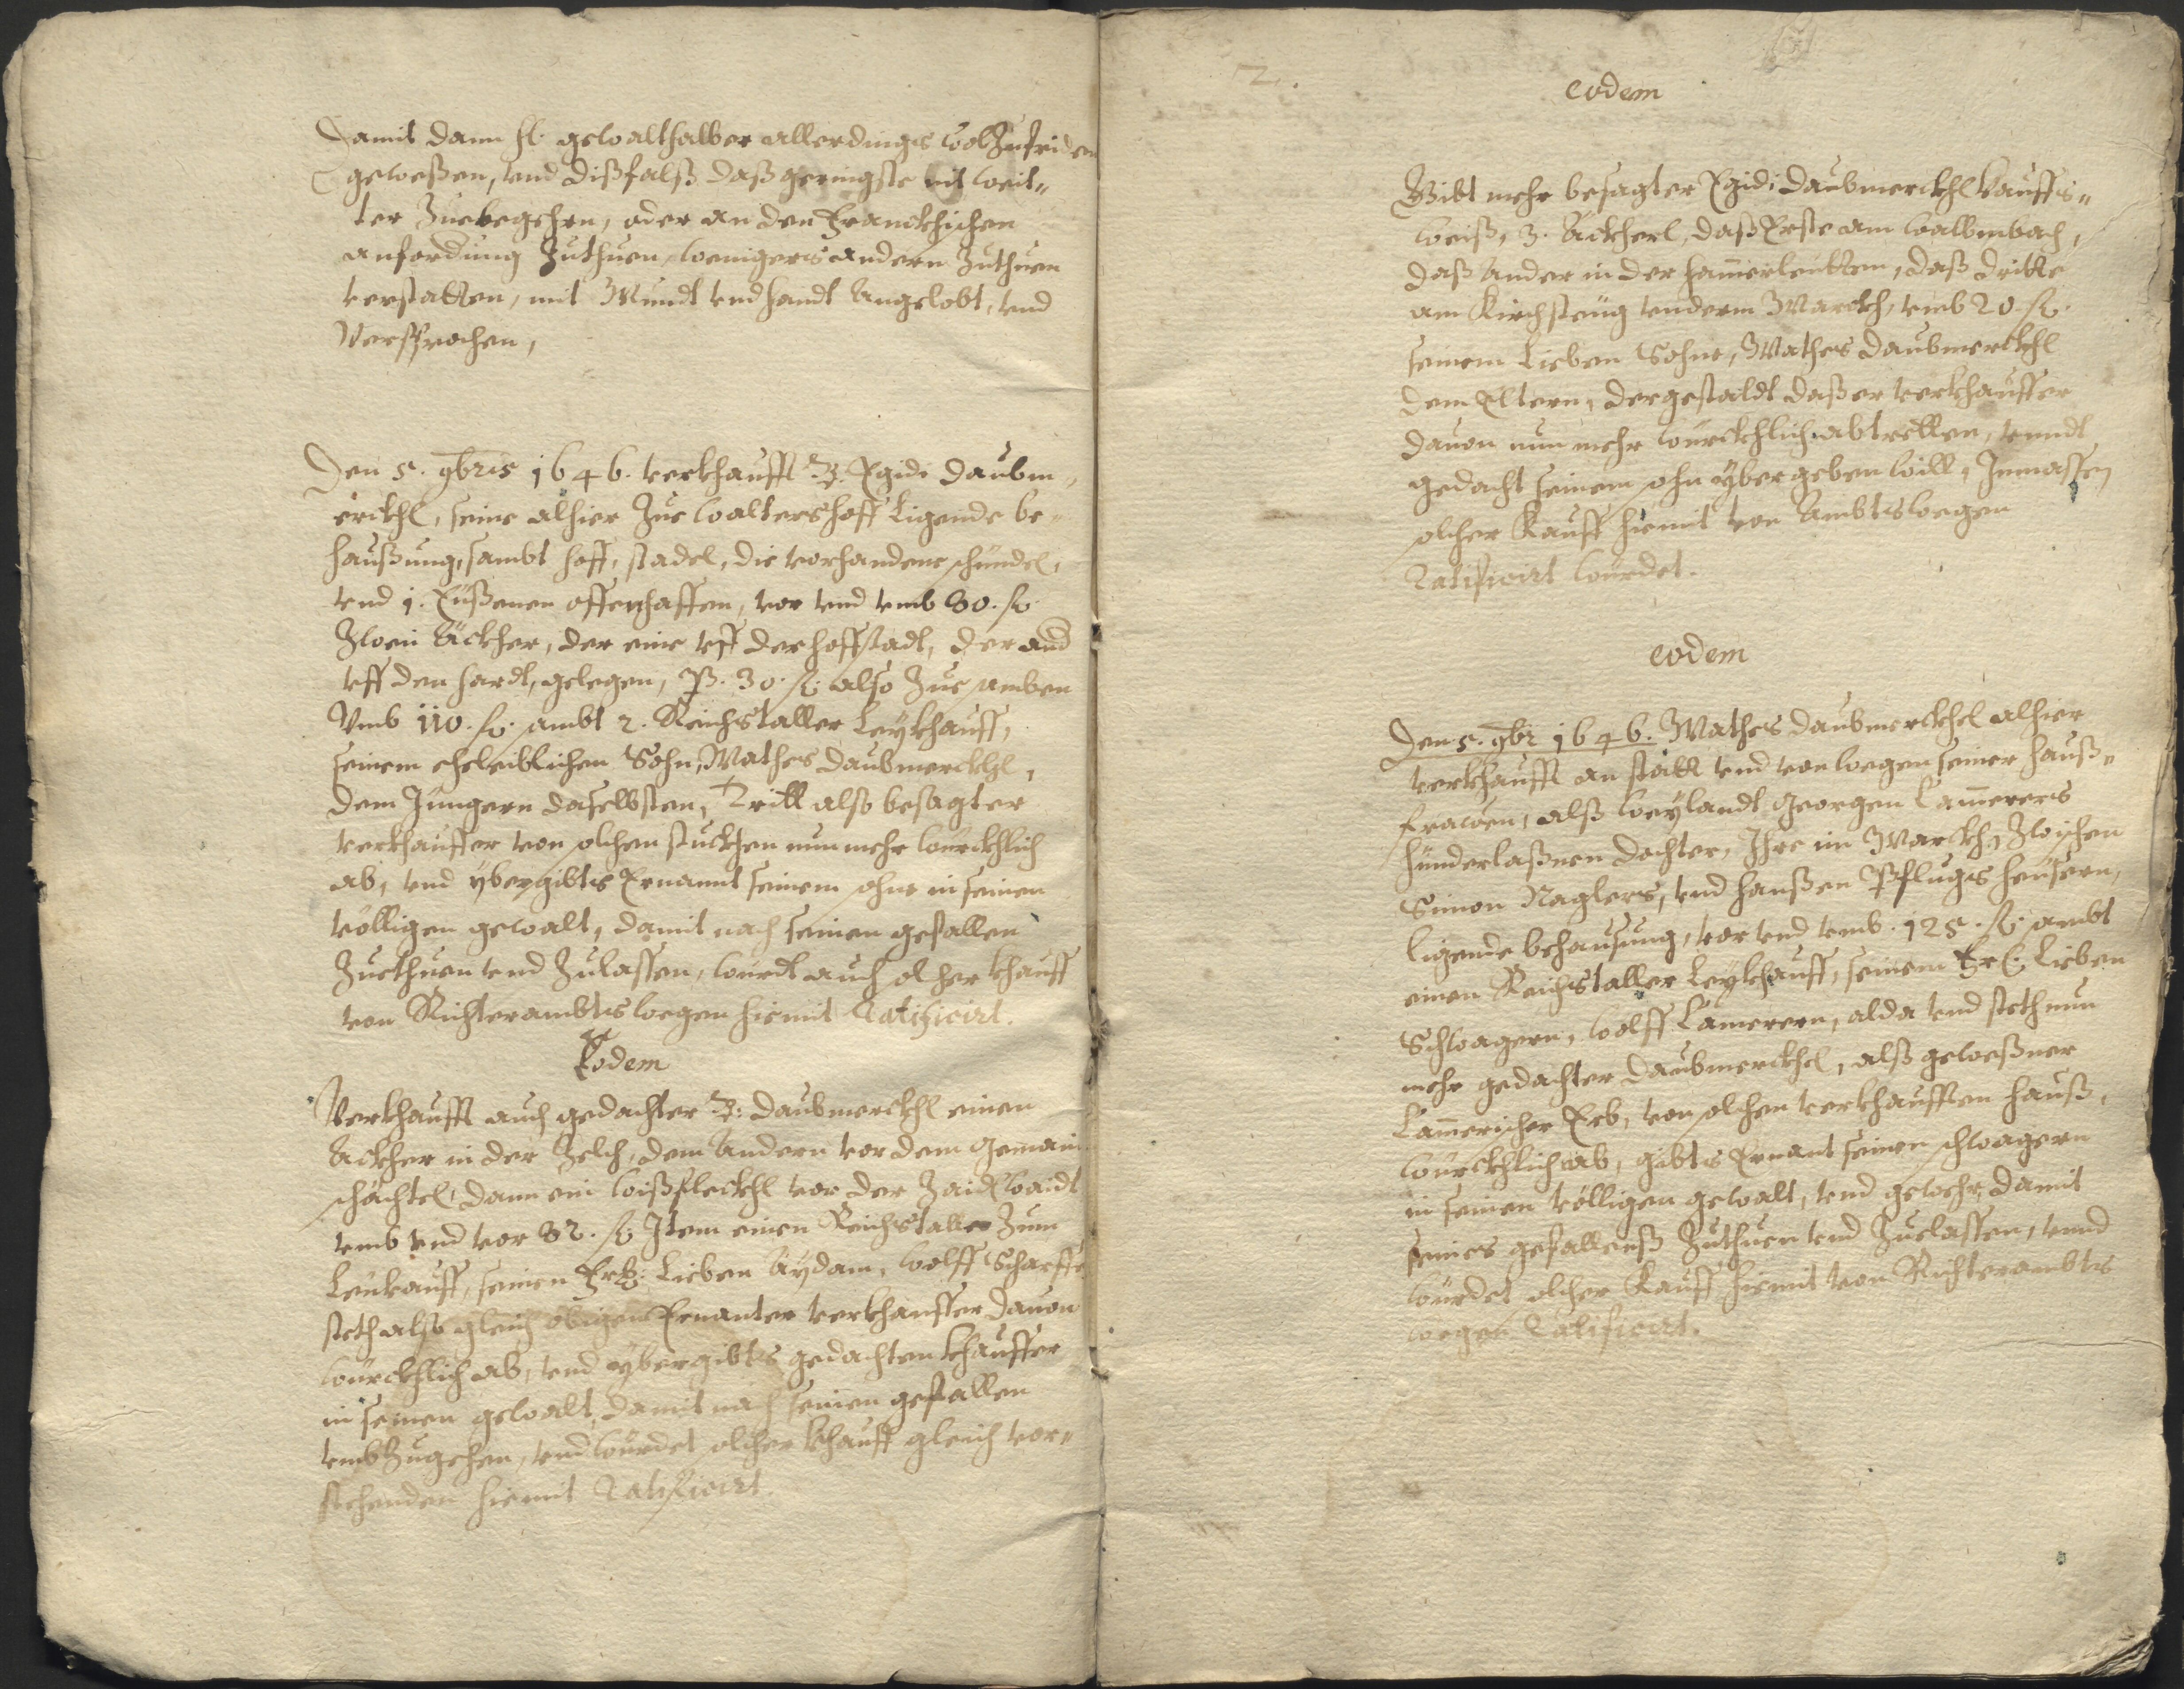 Damit dann H. gewalthaber allerdings wol Zufriden
gewesen, vnd dißfalß daß geringste nit weit-
ter Zuebegehrn, oder an den Franckhischen
anfordung Zuthuen, wenigers andern Zuthuen
verstatten, mit Mundt vnd handt Angelobt, vnd
Versprochen,
Den 5. 9bris 1646. verkhaufft B. Egidi Daubm-
erckhl, seine alhier Zue Waltershoff Ligende be-
haußung, sambt hoff, stadel, die vorhandene schündel,
vnd 1. Eüßenen offenhaffen, vor vnd vmb 80. fl.
Zwen Äckher, der eine vff der hoffstadt, der and
vff den hardt, gelegen, P. 30. fl. also Zue samben
Vmb 110. fl. sambt 2. Reichstaller Leykhauff,
seinem eheleiblichen Sohn, Mathes Daubmerckhl,
dem Jüngern daselbsten, Tritt also besagter
verkhauffer von solchen stuckhen nunmehr würckhlich
ab, vnd ybergibts Ernannt seinem sohne in seinen
völligen gewalt, damit nach seinen gefallen
Zuethuen vnd Zulassen, wurdt auch solcher khauff
von Richterambts wegen hiemit Ratificirt.
Eodem
Verkhaufft auch gedachter B: Daubmerckhl einen
Ackher in der Zelch, dem Andern vor dem gemain
schächtel, dann ein wißfleckhl vor der Zaidlwaidt
vmb vnd vor 82. fl. Item einen Reichstaller Zum
Leükauff, seinen Lieben Aydam, Wolff Scharffe
steth also gleich obigen Ernanter verkhauffer davon
würckhlich ab, vnd ybergibts gedachten khauffer
in seinen gewalt, damit nach seinen gefallen
vmbZugehen, vnd würdet solcher khauff gleich vor-
stehenden hiemit Ratificirt.
2.
eodem
Gibt mehr besagter Egidi Daubmerckhl Kauffs-
weiß, 3. Äckherl, daß Erste am walbmbach,
daß Ander in der hamerleutten, daß dritte
am Kirchsteüg vnderm Marckh, vmb 20. fl.
seinem Lieben Sohne, Mathes Daubmerckhl
dem Eltern, dergestaldt daß er verkhauffer
davon nun mehr würckhlich abtretten, vnndt
gedacht seinem sohn yber geben will, Inmassen
solcher Kauff hiemit von Ambts wegen
Ratificirt würdet.
eodem
Den 5. 9br 1646. Mathes Daubmerckhel alhier
verkhaufft an statt vnd von wegen seiner hauß-
frawen, alß weylandt Georgen Camerers
hünderlaßnen dochter, Ihre im Marckh, Zwischen
Simon Naglers, vnd hanßen Pflugs heüsern,
ligende behausung, vor vnd vmb. 125. fl. sambt
einen Reichstaller Leykhauff, seinem Lieben
Schwagern, Wolff Camerern, alda vnd steth nun
mehr gedachter Daubmerckhel, alß geweßner
Camerischer Erb, von solchen verkhaufften hauß,
würckhlich ab, gibts Ernant seinen schwagern
in seinen völligen gewalt, vnd gewehr, damit
seines gefallenß Zuthuen vnd Zuelassen, vnnd
würdet solcher Kauff hiemit von Richterambts
wegen Ratificirt.